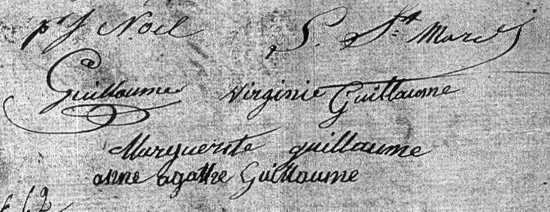 pr J Noël S. St Marc
Guillaume Virginie Guillaume
Marguerite guillaume
anne agathe Guillaume